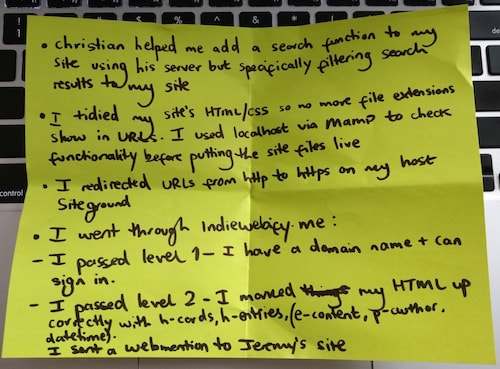 • Christian helped me add a search function to my
site using his server but specifically filtering search
results to my site
• I tidied my site's HTML/CSS so no more file extensions
show in URLs. I used localhost via MAMP to check
functionality before putting the site files live
• I redirected URLs from http to https on my host
Siteground
• I went through Indiewebify.me:
– I passed level 1 – I have a domain name + can
sign in.
– I passed level 2 – I marked things my HTML up
correctly with h-cards, h-entries, (e-content, p-author,
datetime).
I sent a webmention to Jeremy's site
control